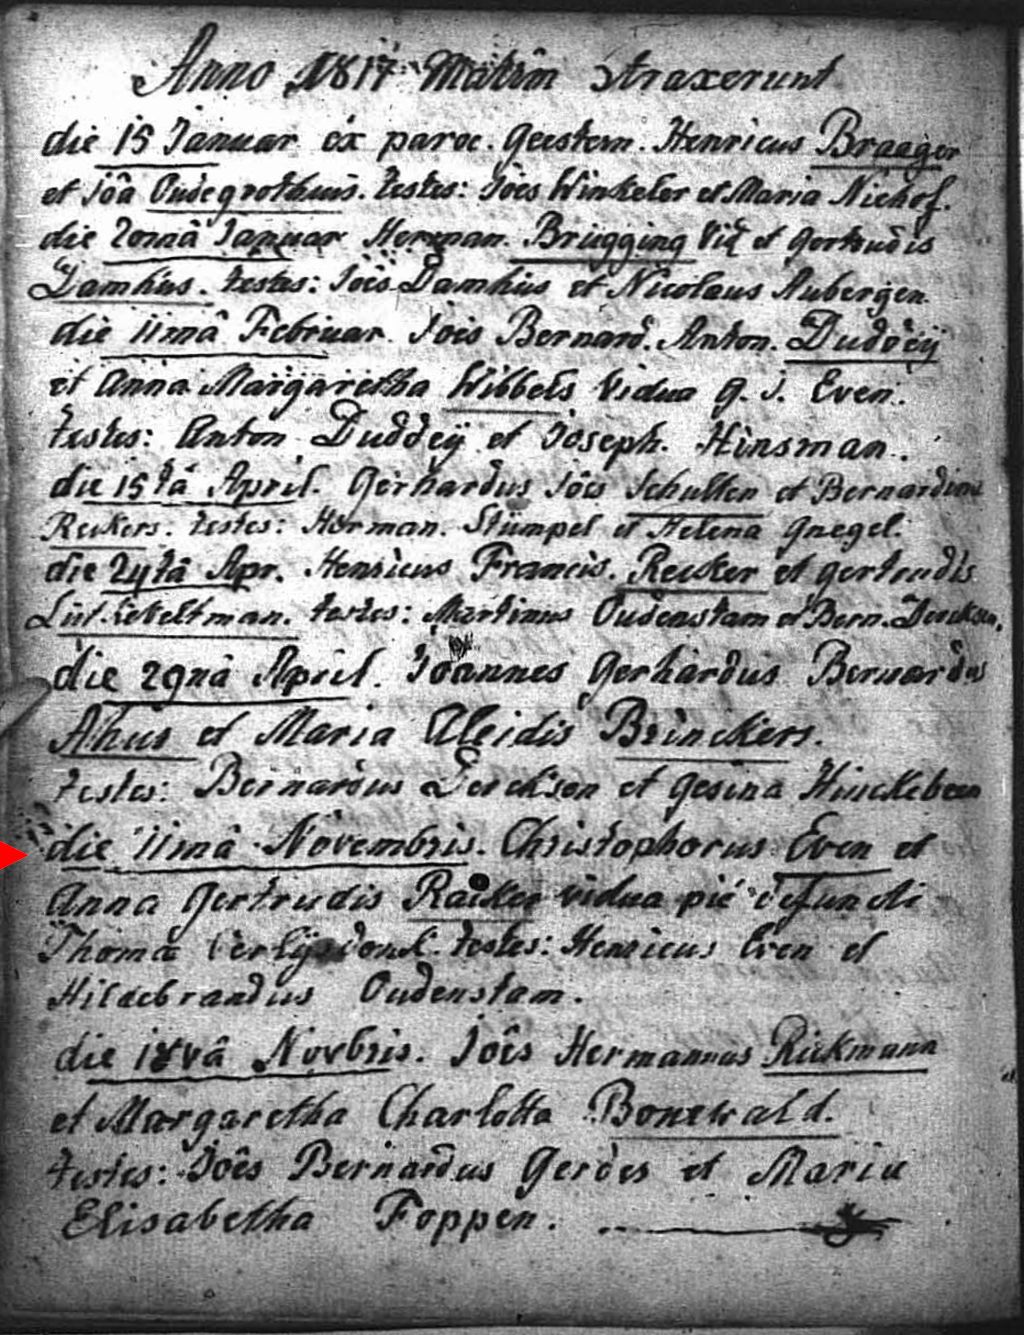 Anno 1817 Matrîm Straxerunt
die 15 Januar ex paroc. Geestem. Henricus Braager
et Jôa Oudegrothuis. testes: Jôes Winkeler et Maria Niehof.
die 20mâ Januar Herman. Brügging Vid et Gertrudis
Damhüs. testes: Joês Damhüs et Nicolaus Aubergen.
die 11mâ Februar Joês Bernard. Anton. Duddeÿ
et Anna Margaretha Wibbels Vidua G. J. Even.
testes: Anton Duddeÿ et Joseph. Hinsman.
die 15tâ April. Gerhardus Jôês Schulten et Bernardina
Reikers. testes: Herman. Stümpel et Helena Gnegel.
die 24tâ Apr. Henricus Francis. Recker et Gertrudis
testes: Martinus Oudenstam et Bern. Dercksen.
die 29nâ April. Joannes Gerhardus Bernardus
Ahus et Maria Aleidis Brinckers.
testes: Bernardus Dercksen et Gesina Hinckebeen
die 11mâ Novembris. Christophorus Even et
Anna Gertrudis Racker vidua piê defuncti
Thoma testes: Henricus Even et
Hildebrandus Oudenstam.
die 18vâ Novbris. Joês Hermannus Rickmann
et Margaretha Charlotta Bonewald.
testes: Joês Bernardus Gerdes et Maria
Elisabetha Foppen.